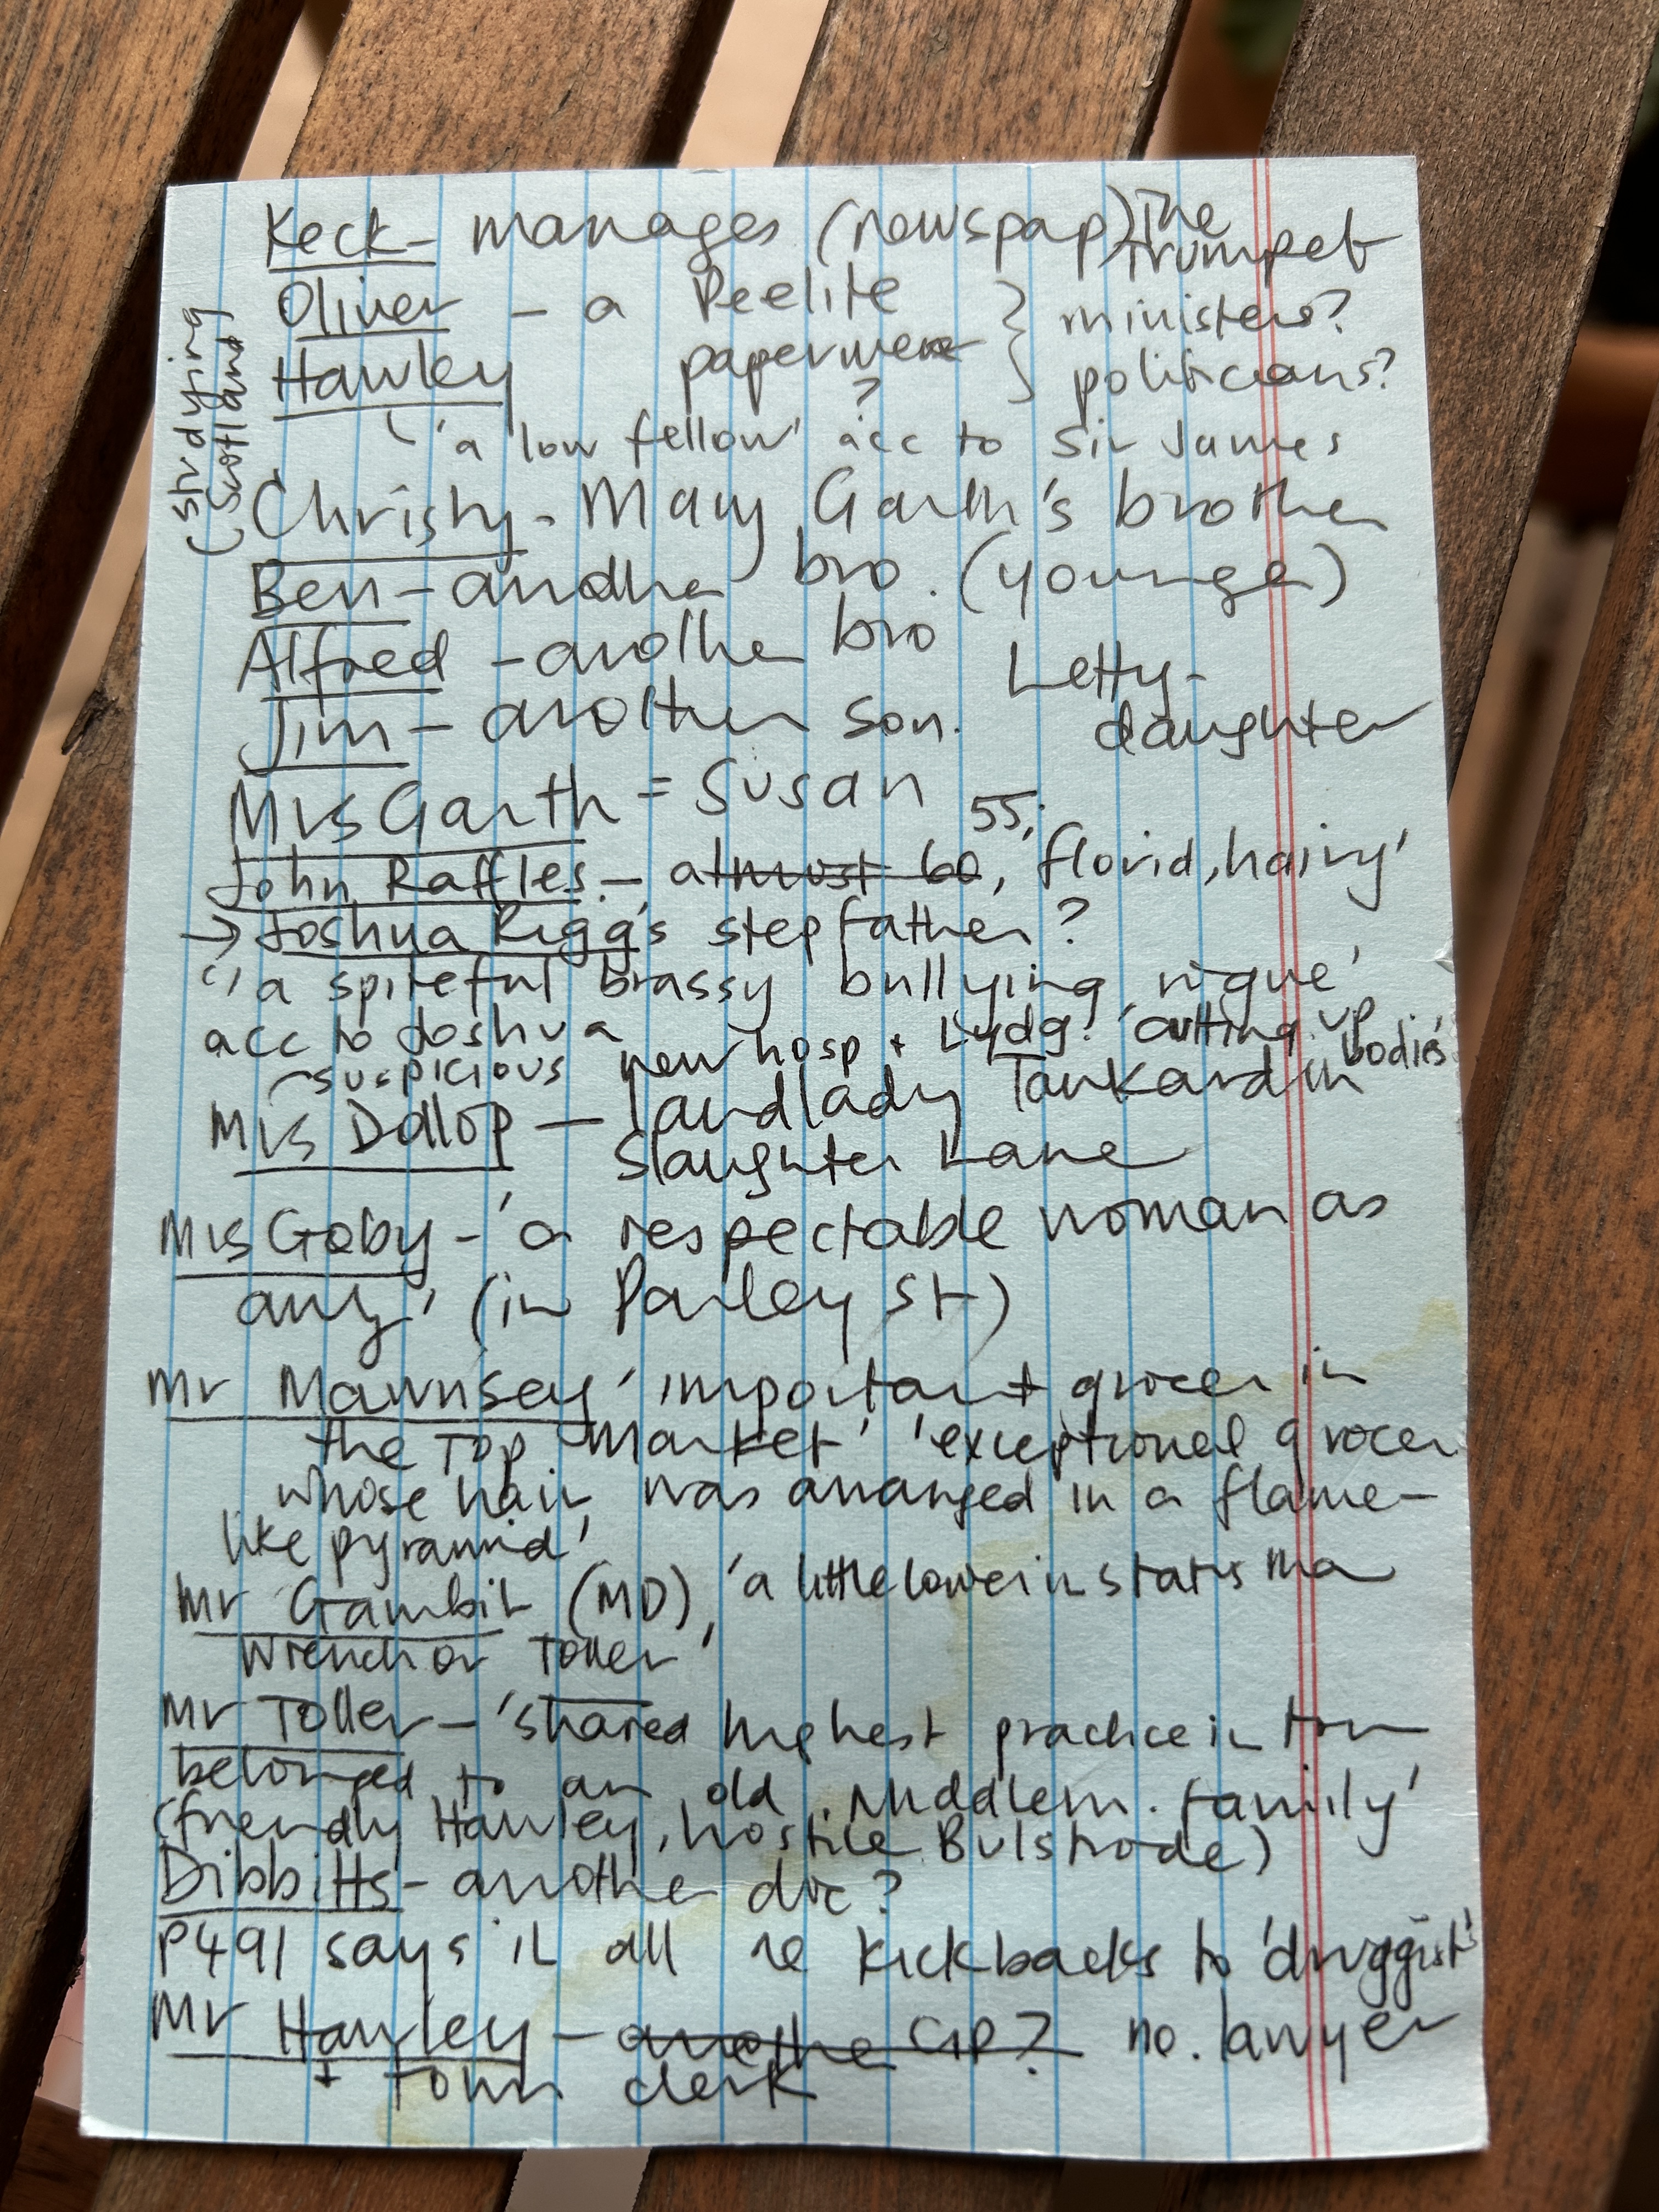 Keck - manages (newspap) The Trumpet
Oliver - a Peelite } ministers?
Hawley } politicians?
?
'a low fellow' acc to Sir James
(studying Scotland)
Christy - Mary Garth's brother
Ben - another bro. (younger)
Alfred - another bro
Jim - another son. Letty - daughter
Mrs Garth = Susan
John Raffles - almost 60, 55, 'florid, hairy'
→ Joshua Rigg's stepfather?
'a spiteful brassy bullying rogue'
acc to Joshua
suspicious new hosp + Lydg. 'cutting up bodies'
Mrs Dollop - landlady Tankard in
Slaughter Lane
Mrs Goby - 'a respectable woman as
any' (in Parley St)
Mr Mawmsey 'important grocer in
the Top Market' 'exceptional grocer
whose hair was arranged in a flame-
like pyramid'
Mr Gambit (MD), 'a little lower in status than
Wrench or Toller'
Mr Toller - 'shared highest practice in town
belonged to an old Middlem. family'
(friendly Hawley, hostile Bulstrode)
Dibbitts - another doc?
P491 says it all re kickbacks to 'druggists'
Mr Hawley - another GP? no. lawyer
+ town clerk